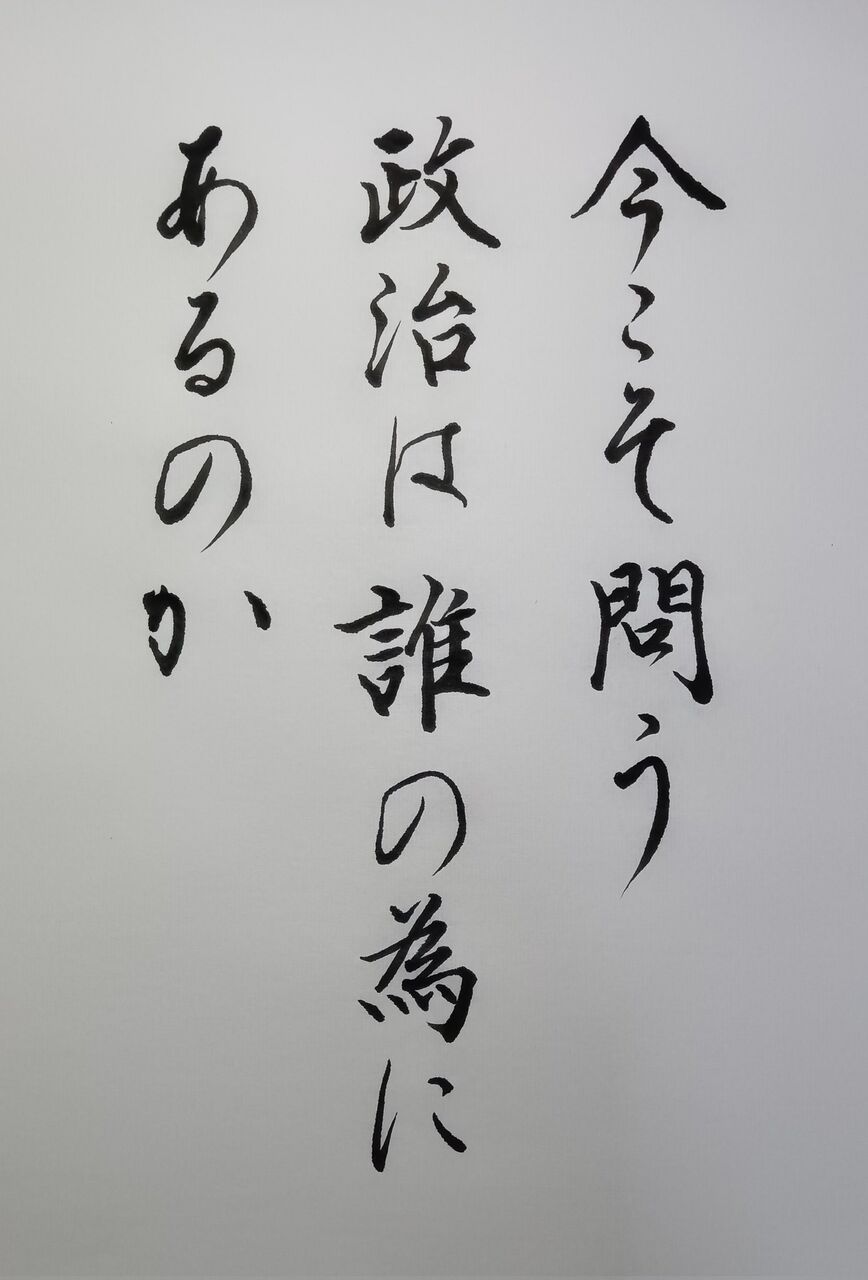 今こそ問う
政治は誰の為に
あるのか